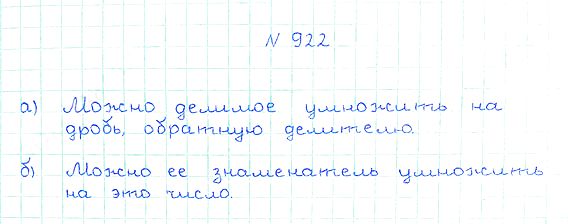 N 922
а) Можно делимое умножить на
дробь, обратную делителю.
б) Можно ее знаменатель умножить
на это число.